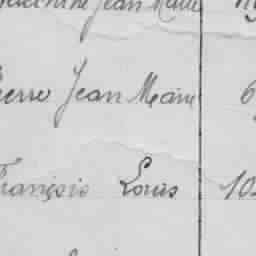 Jean Marie
Pierre Jean Marie 6
François Louis 10